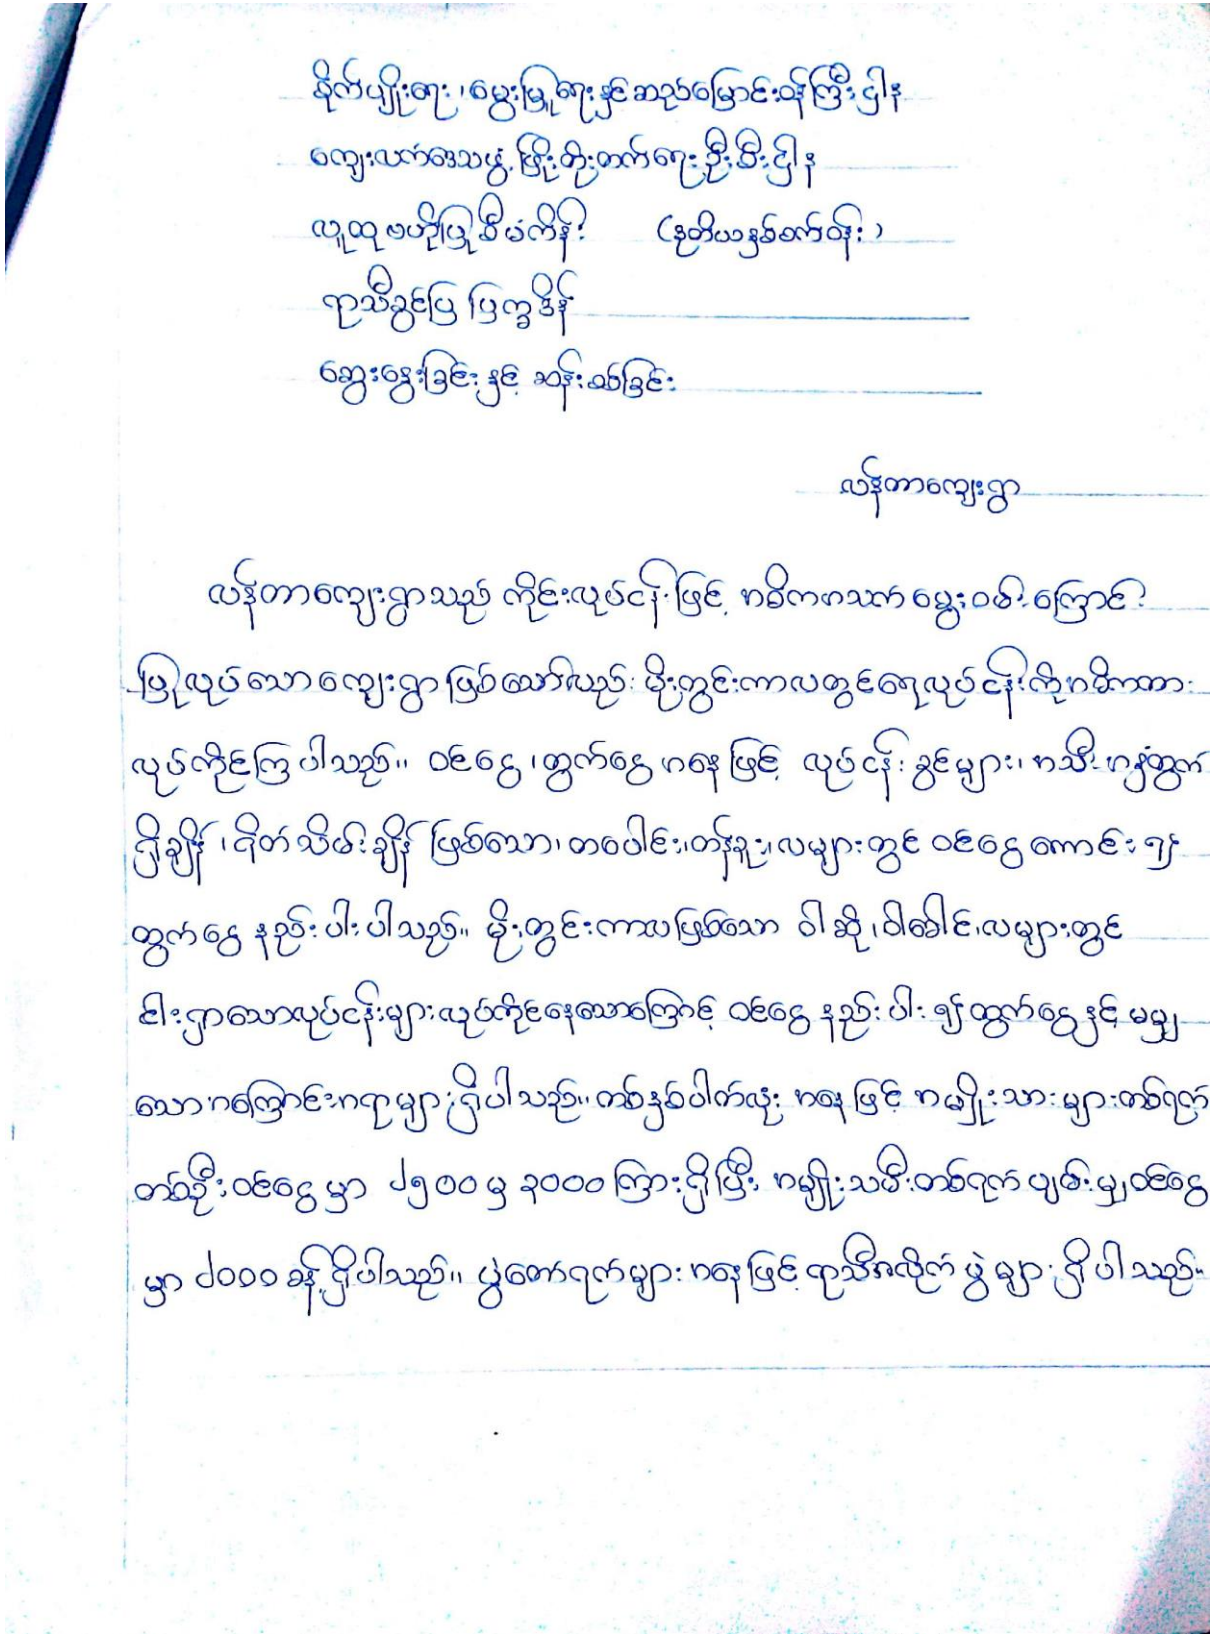 စိုက်ပျိုးရေး၊မွေးမြူရေးနှင့်ဆည်မြောင်းဝန်ကြီးဌါန
ကျေးလက်ဒေသဖွံ့ဖြိုးတိုးတက်ရေးဦးစီးဌါန
လူထုဗဟိုပြုစီမံကိန်း (ဒုတိယနှစ်စက်ဝန်း)
ရာသီခွင်ပြ ပြက္ခဒိန်
ဆွေးနွေးခြင်းနှင့် ဆန်းစစ်ခြင်း
လန်တာကျေးရွာ
လန်တာကျေးရွာသည် ကိုင်းလုပ်ငန်းဖြင့် အဓိကအသက်မွေးဝမ်းကြောင်း
ပြုလုပ်သောကျေးရွာဖြစ်သော်လည်း မိုးတွင်းကာလတွင်ရေလုပ်ငန်းကိုအဓိကထား
လုပ်ကိုင်ကြပါသည်။ ဝင်ငွေ၊ထွက်ငွေအနေဖြင့် လုပ်ငန်းခွင်များ၊ အသီးအနှံထွက်
ရှိချိန်၊ရိတ်သိမ်းချိန်ဖြစ်သော၊တပေါင်း၊တန်ခူး၊လများတွင် ဝင်ငွေကောင်း၍
ထွက်ငွေ နည်းပါးပါသည်။ မိုးတွင်းကာလဖြစ်သော ဝါဆို၊ဝါခေါင်၊လများတွင်
ငါးရှာသောလုပ်ငန်းများလုပ်ကိုင်နေသောကြောင့် ဝင်ငွေနည်းပါး၍ထွက်ငွေနှင့်မမျှ
သောအကြောင်းအရာများရှိပါသည်။တစ်နှစ်ပါတ်လုံး အနေဖြင့် အမျိုးသားများတစ်ရက်
တစ်ဦးဝင်ငွေမှာ ၂၅၀၀မှ ၃၀၀၀ ကြားရှိပြီး အမျိုးသမီးတစ်ရက်ပျမ်းမျှဝင်ငွေ
မှာ ၂၀၀၀ခန့်ရှိပါသည်။ ပွဲတော်ရက်များအနေဖြင့် ရာသီအလိုက်ပွဲများရှိပါသည်။